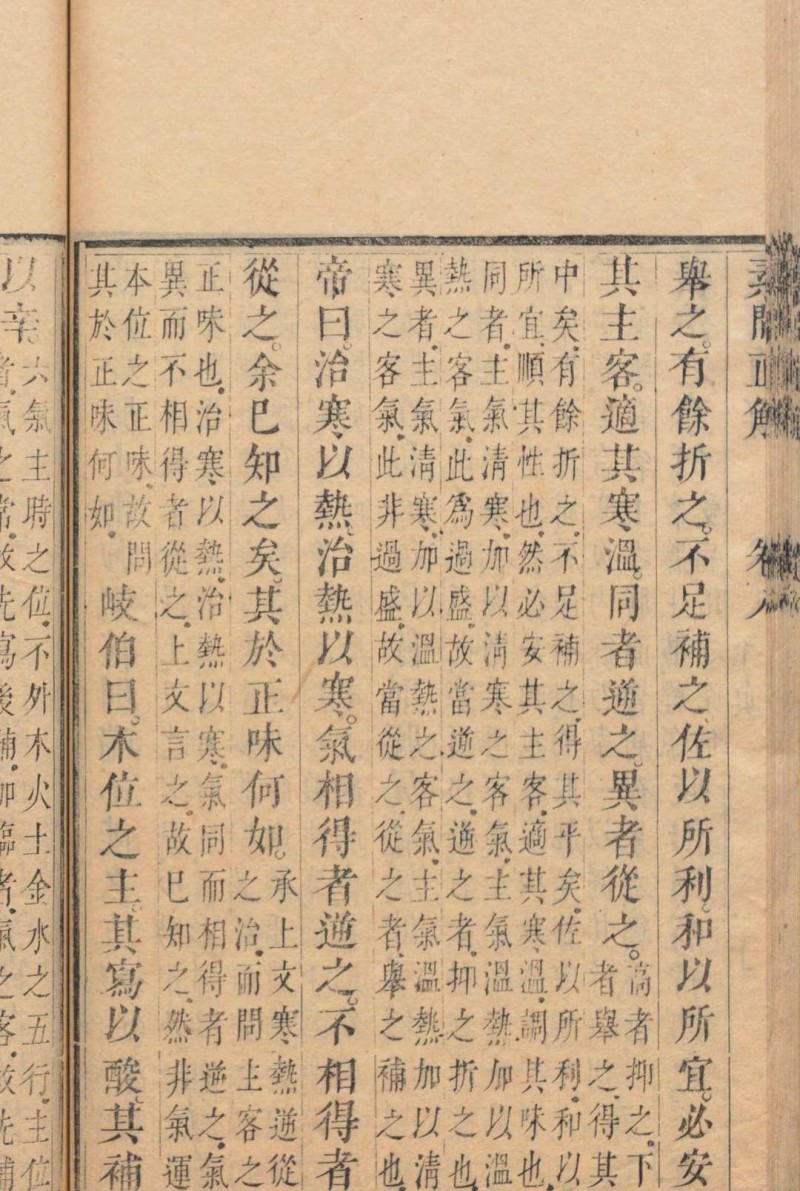 素問正解 卷八
舉之。有餘折之。不足補之。佐以所利。和以所宜。必安
其主客。適其寒溫。同者逆之。異者從之。
高者抑之。下
者舉之。得其
中矣。有餘折之。不足補之。得其平矣。佐以所利。和以
所宜。順其性也。然必安其主客。適其寒溫。調其味也。
同者。主氣清寒。加以清寒之客氣。主氣溫熱。加以溫
熱之客氣。此為過盛。故當逆之。逆之者。抑之折之也。
異者。主氣清寒。加以溫熱之客氣。主氣溫熱。加以清
寒之客氣。此非過盛。故當從之。從之者。舉之補之也。
帝曰。治寒以熱。治熱以寒。氣相得者逆之。不相得者
從之。余已知之矣。其於正味何如。
承上文寒熱逆從
之治。而問主客之
正味也。治寒以熱。治熱以寒。氣同而相得者逆之。氣
異而不相得者從之。上文言之。故已知之。然非氣運
本位之正味。故問
其於正味何如。
岐伯曰。木位之主。其寫以酸。其補
以辛。
六氣主時之位。不外木火土金水之五行。主位
者。氣之常。故先寫後補。加臨者。氣之客。故先補